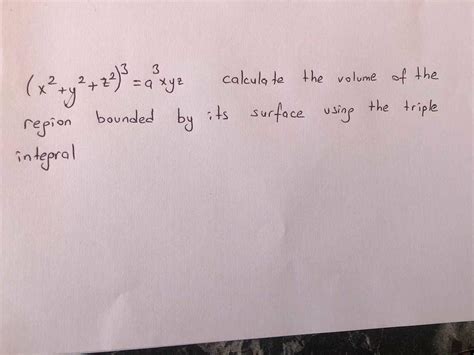 (x²+y²+z²)³=a³xyz calculate the volume of the
region bounded by its surface using the triple
integral